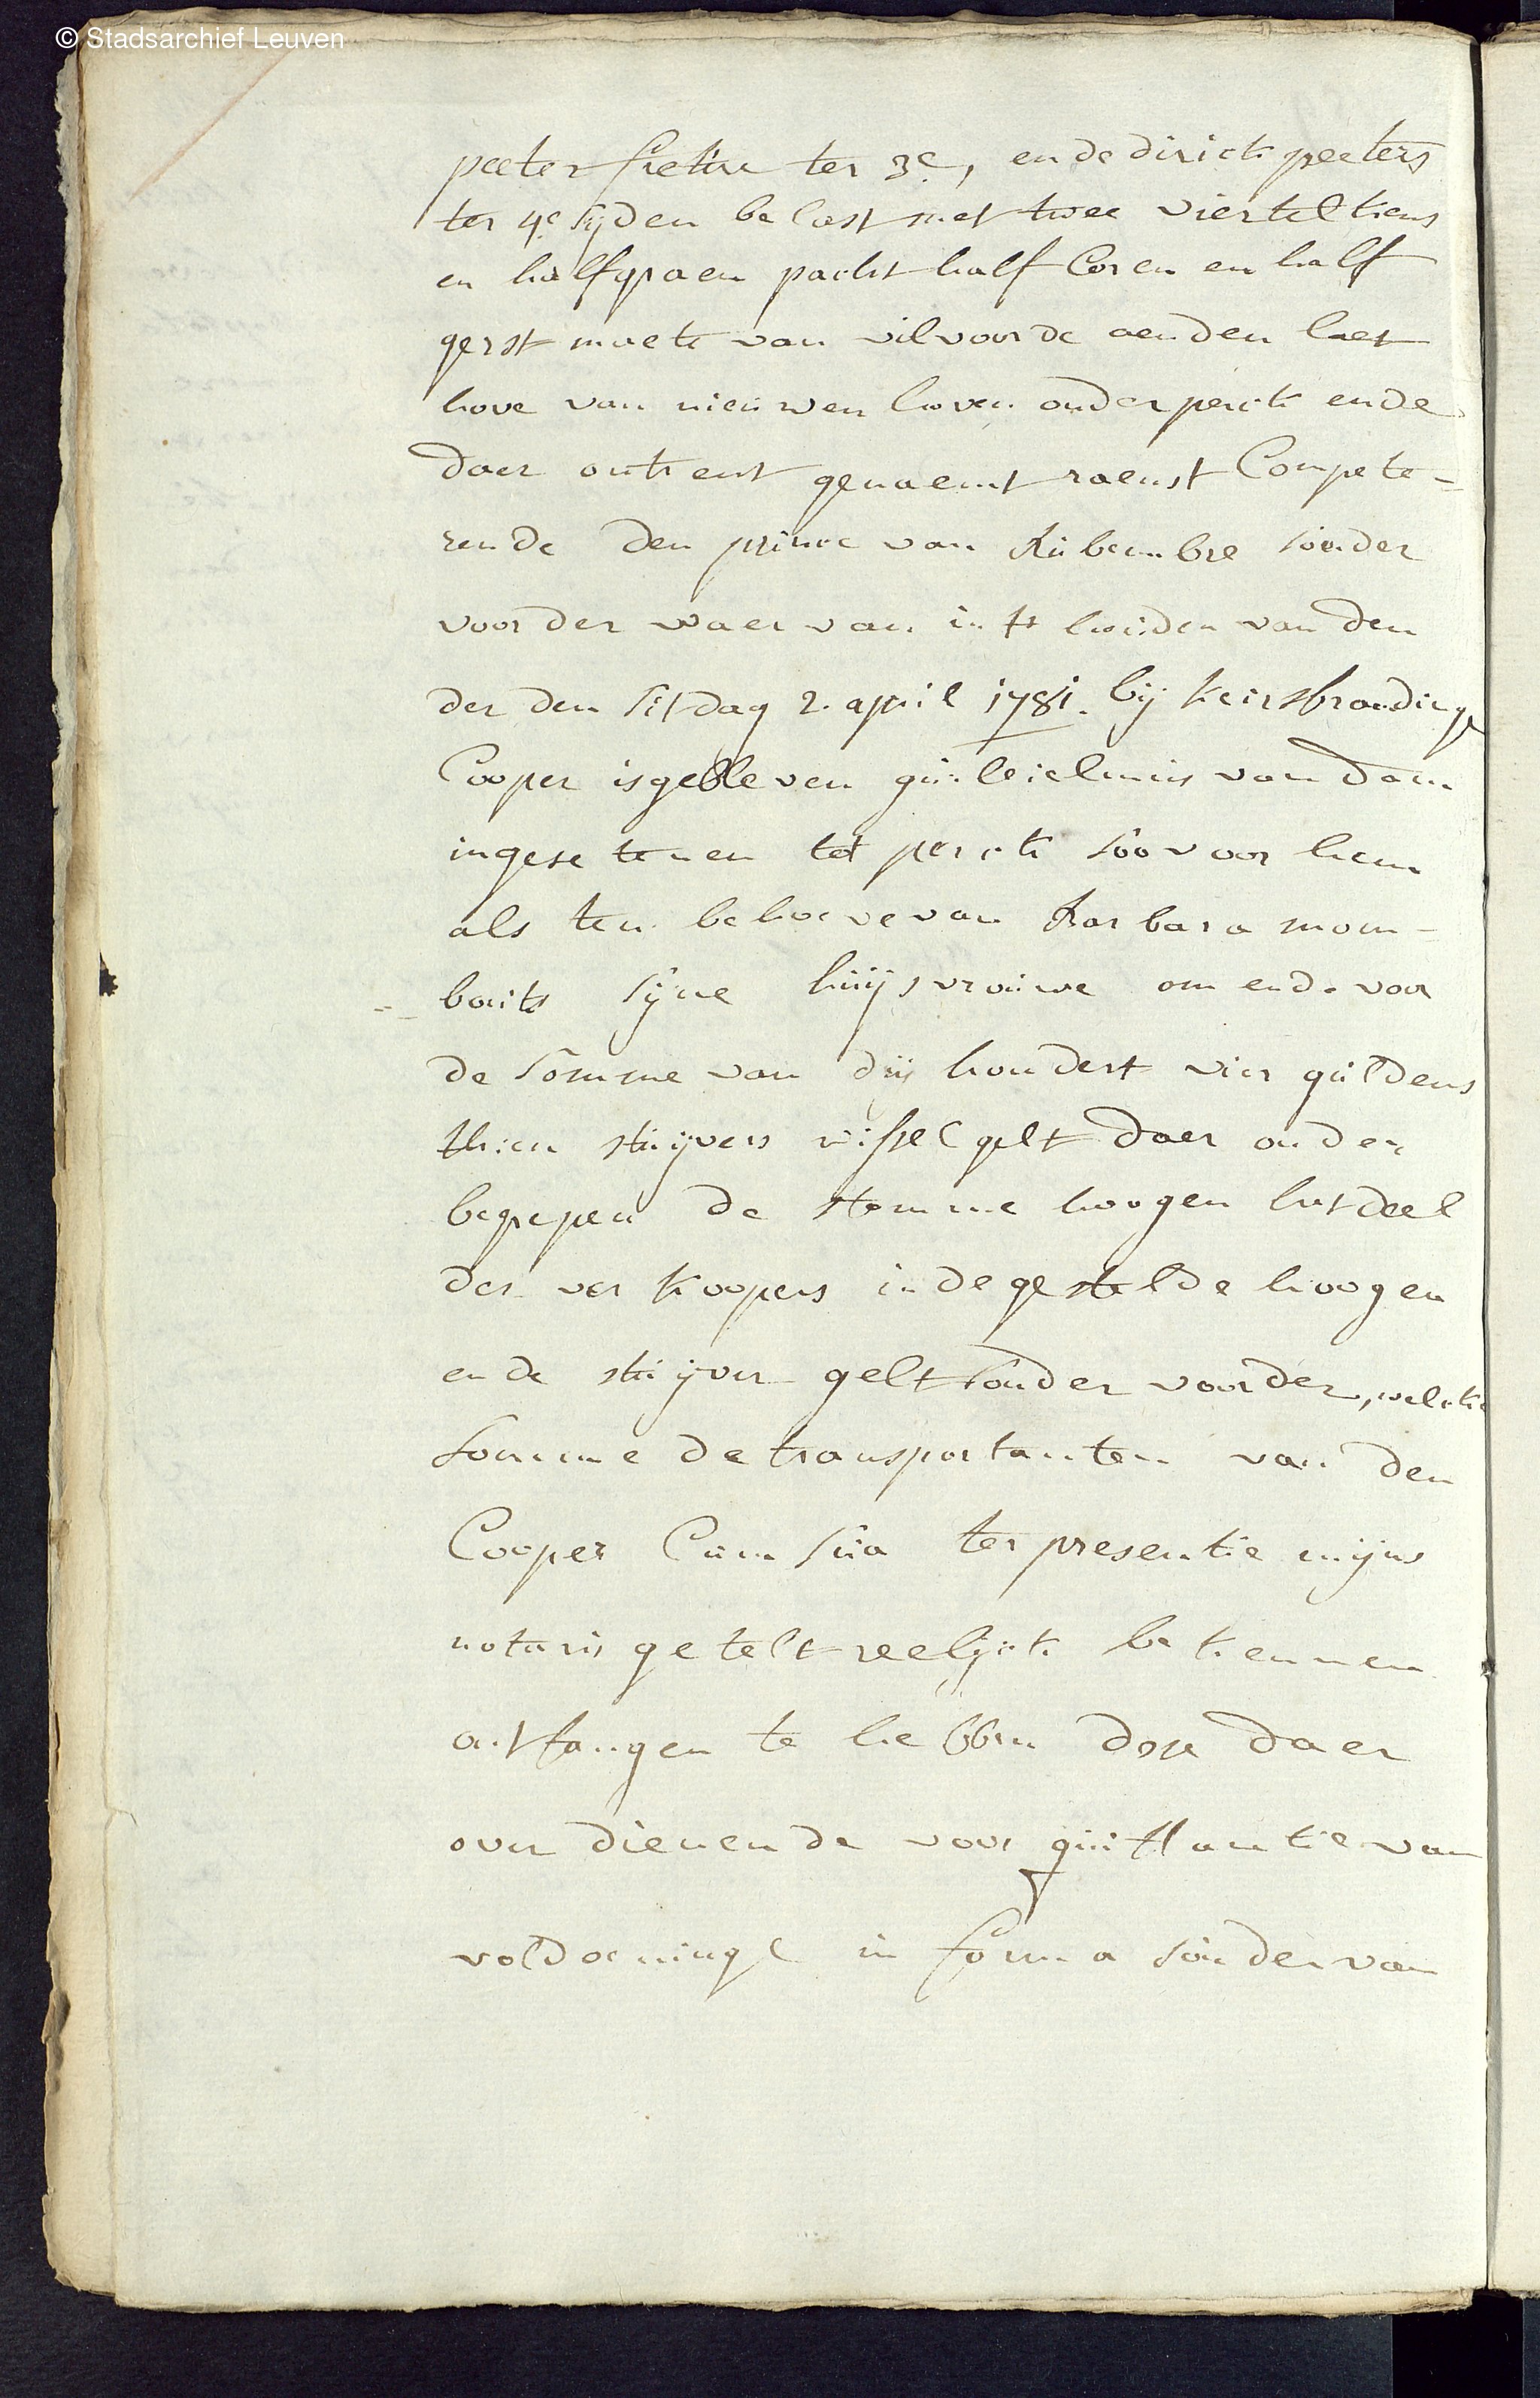 © Stadsarchief Leuven
peeter ter 3e, ende dirick peeters
ter 4e sijden belast met twee viertel tiens
en half graen pacht half Coren en half
gerst maete van vilvoorde aen den laet
hove van nieuwen hoven onder perck ende
daer ontrent genaemt raenst Compete-
rende den prince van Rubembre sonder
voorder waer van in 't houden van den
derden sitdag 2. april 1781. bij keirsbrandinge
Cooper is gebleven guilielmus van dam
ingesetenen tot perck soo voor hem
als ten behoeve van Barbara mom-
bouts sijne huijsvrouwe om ende voor
de somme van drij hondert vier guldens
thien stuijvers wissel gelt daer onder
begrepen de stomme hoogen het deel
der verkoopers in de gestelde hoogen
ende stuijver gelt sonder voorder, welcke
somme de transportanten van den
Cooper Cum sua ter presentie mijns
notaris getelt reelijck bekennen
ontfangen te hebben dese daer
over dienende voor quittantie van
voldoeninge in forma sonder van